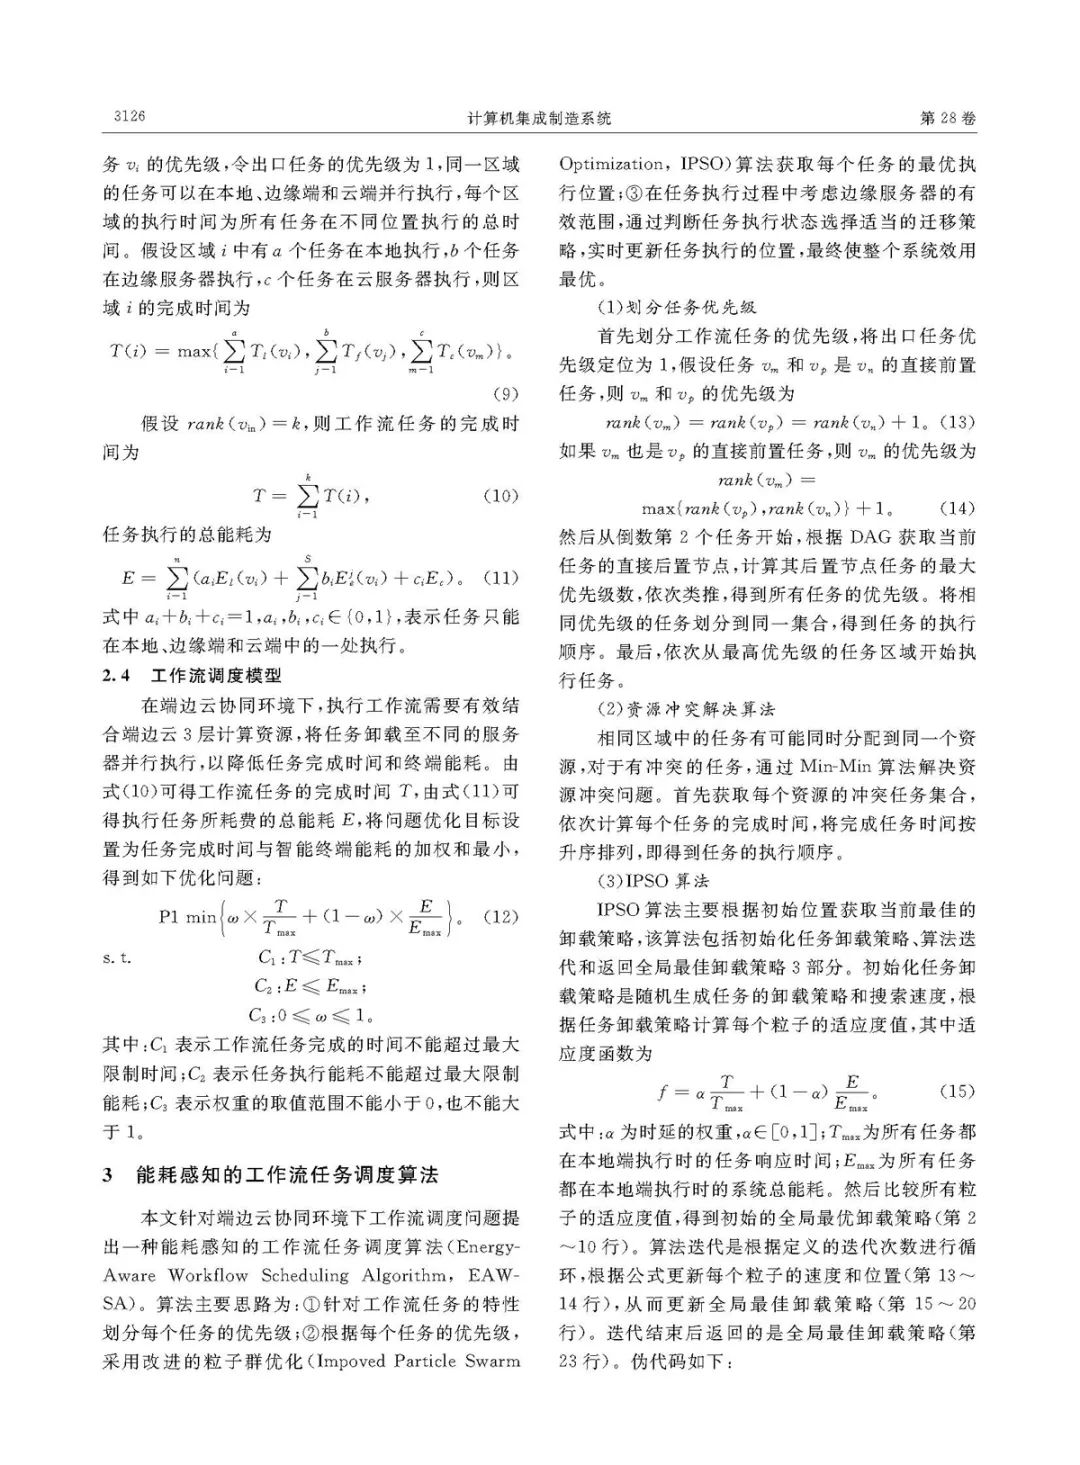 3126
计算机集成制造系统
第 28 卷
务 vᵢ 的优先级,令出口任务的优先级为 1,同一区域
的任务可以在本地、边缘端和云端并行执行,每个区
域的执行时间为所有任务在不同位置执行的总时
间。假设区域 i 中有 a 个任务在本地执行,b 个任务
在边缘服务器执行,c 个任务在云服务器执行,则区
域 i 的完成时间为
T(i) = max{∑_{i=1}^{a} Tₗ(vᵢ), ∑_{j=1}^{b} T_f(vⱼ), ∑_{m=1}^{c} T_c(vₘ)}。
(9)
假设 rank(v_in)=k,则工作流任务的完成时
间为
T = ∑_{i=1}^{k} T(i), (10)
任务执行的总能耗为
E = ∑_{i=1}^{n} (aᵢEₗ(vᵢ) + ∑_{j=1}^{S} bᵢE_e^j(vᵢ) + cᵢE_c)。 (11)
式中 aᵢ+bᵢ+cᵢ=1,aᵢ,bᵢ,cᵢ∈{0,1},表示任务只能
在本地、边缘端和云端中的一处执行。
2.4 工作流调度模型
在端边云协同环境下,执行工作流需要有效结
合端边云 3 层计算资源,将任务卸载至不同的服务
器并行执行,以降低任务完成时间和终端能耗。由
式(10)可得工作流任务的完成时间 T,由式(11)可
得执行任务所耗费的总能耗 E,将问题优化目标设
置为任务完成时间与智能终端能耗的加权和最小,
得到如下优化问题:
P1 min{ω× T/T_max +(1-ω)× E/E_max}。 (12)
s.t. C₁:T⩽T_max;
C₂:E⩽E_max;
C₃:0⩽ω⩽1。
其中:C₁ 表示工作流任务完成的时间不能超过最大
限制时间;C₂ 表示任务执行能耗不能超过最大限制
能耗;C₃ 表示权重的取值范围不能小于 0,也不能大
于 1。
3 能耗感知的工作流任务调度算法
本文针对端边云协同环境下工作流调度问题提
出一种能耗感知的工作流任务调度算法(Energy-
Aware Workflow Scheduling Algorithm, EAW-
SA)。算法主要思路为:①针对工作流任务的特性
划分每个任务的优先级;②根据每个任务的优先级,
采用改进的粒子群优化(Impoved Particle Swarm
Optimization, IPSO)算法获取每个任务的最优执
行位置;③在任务执行过程中考虑边缘服务器的有
效范围,通过判断任务执行状态选择适当的迁移策
略,实时更新任务执行的位置,最终使整个系统效用
最优。
(1)划分任务优先级
首先划分工作流任务的优先级,将出口任务优
先级定位为 1,假设任务 vₘ 和 vₚ 是 vₙ 的直接前置
任务,则 vₘ 和 vₚ 的优先级为
rank(vₘ) = rank(vₚ) = rank(vₙ)+1。(13)
如果 vₘ 也是 vₚ 的直接前置任务,则 vₘ 的优先级为
rank(vₘ) =
max{rank(vₚ),rank(vₙ)}+1。 (14)
然后从倒数第 2 个任务开始,根据 DAG 获取当前
任务的直接后置节点,计算其后置节点任务的最大
优先级数,依次类推,得到所有任务的优先级。将相
同优先级的任务划分到同一集合,得到任务的执行
顺序。最后,依次从最高优先级的任务区域开始执
行任务。
(2)资源冲突解决算法
相同区域中的任务有可能同时分配到同一个资
源,对于有冲突的任务,通过 Min-Min 算法解决资
源冲突问题。首先获取每个资源的冲突任务集合,
依次计算每个任务的完成时间,将完成任务时间按
升序排列,即得到任务的执行顺序。
(3)IPSO 算法
IPSO 算法主要根据初始位置获取当前最佳的
卸载策略,该算法包括初始化任务卸载策略、算法迭
代和返回全局最佳卸载策略 3 部分。初始化任务卸
载策略是随机生成任务的卸载策略和搜索速度,根
据任务卸载策略计算每个粒子的适应度值,其中适
应度函数为
f = α T/T_max +(1-α) E/E_max。 (15)
式中:α 为时延的权重,α∈[0,1];T_max为所有任务都
在本地端执行时的任务响应时间;E_max为所有任务
都在本地端执行时的系统总能耗。然后比较所有粒
子的适应度值,得到初始的全局最优卸载策略(第 2
～10 行)。算法迭代是根据定义的迭代次数进行循
环,根据公式更新每个粒子的速度和位置(第 13～
14 行),从而更新全局最佳卸载策略(第 15～20
行)。迭代结束后返回的是全局最佳卸载策略(第
23 行)。伪代码如下: